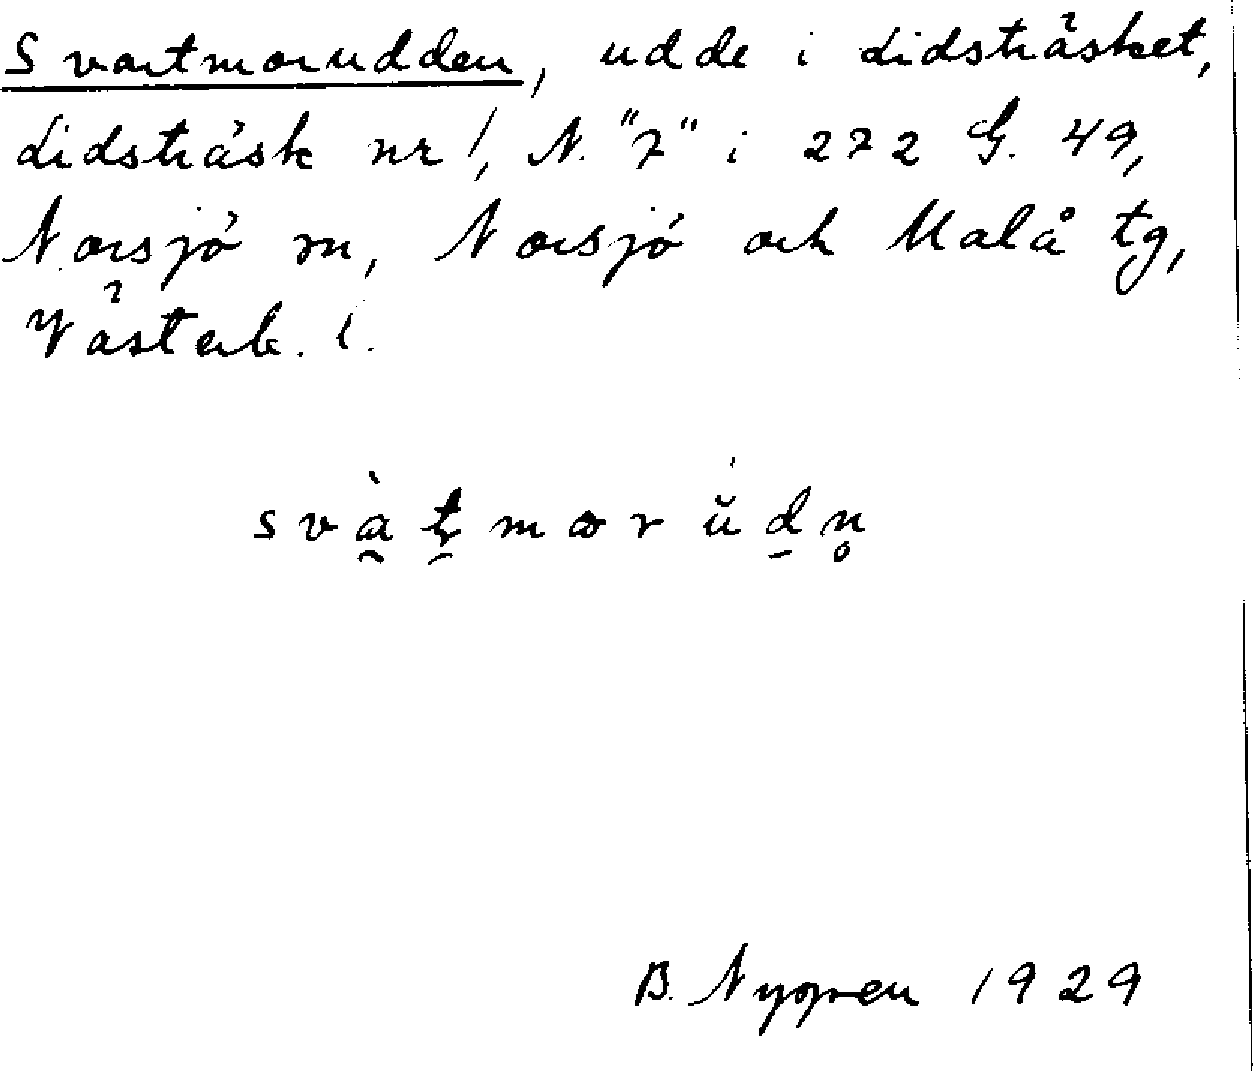 Svartmorudden, udde i Lidsträsket,
Lidsträsk nr 1, N. "7" i 272 G. 49,
Norsjö sn, Norsjö och Malå tg,
Västerb. l.
svàt̯mơrŭ́dn̥
B. Nygren 1929